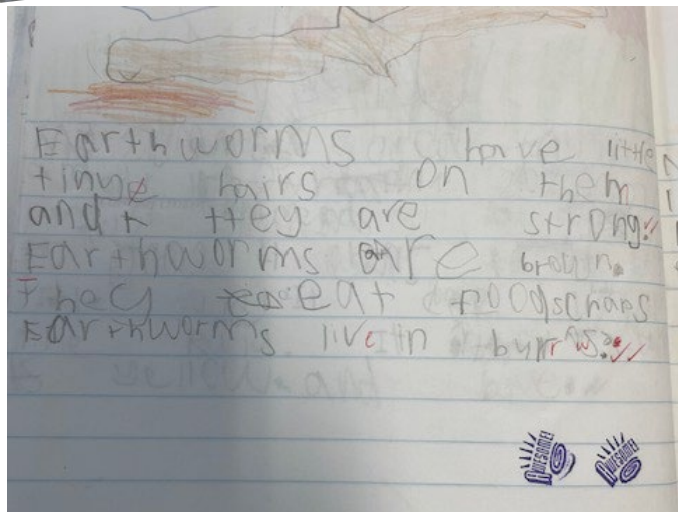 Earthworms have little
tiny hairs on them
and they are strong.
Earthworms are brown.
They eat foodscraps
Earthworms live in burrws.
AWESOME! AWESOME!